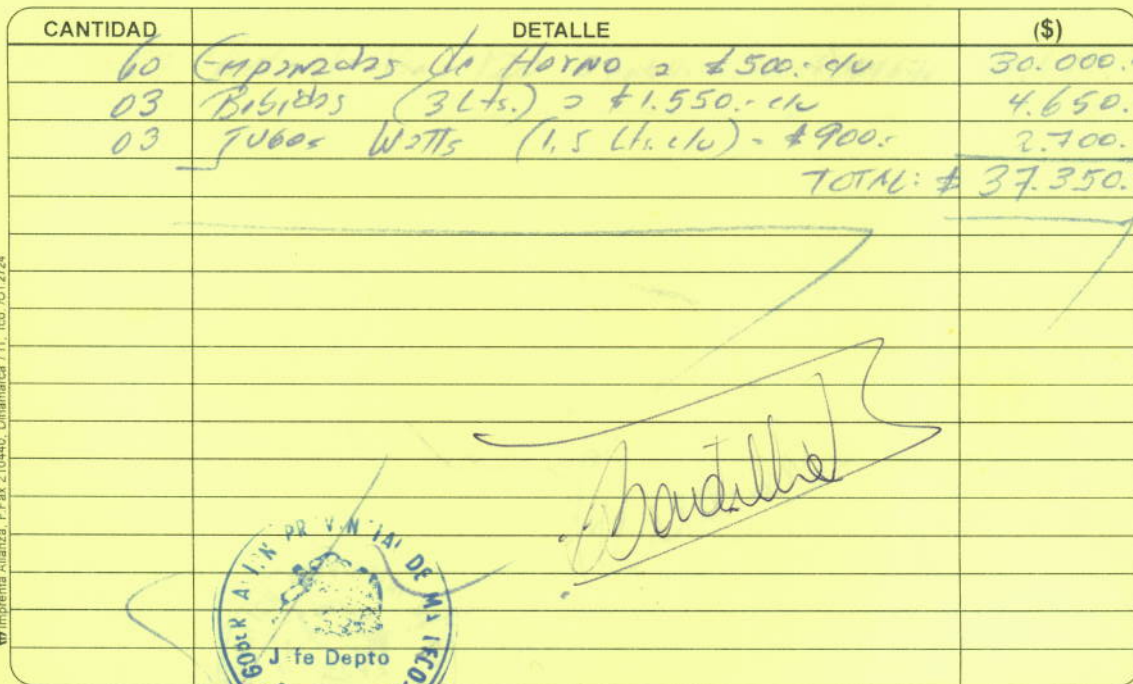 CANTIDAD DETALLE ($)
60 Empanadas de Horno a $500.- c/u 30.000.-
03 Bebidas (3 Lts.) a $1.550.- c/u 4.650.
03 Jugos Watts (1.5 Lts. c/u) - $900.- 2.700.
TOTAL: $ 37.350.
Imprenta Alianza, F.Fax 210440, Dinamarca 711, Tco.
Jefe Depto